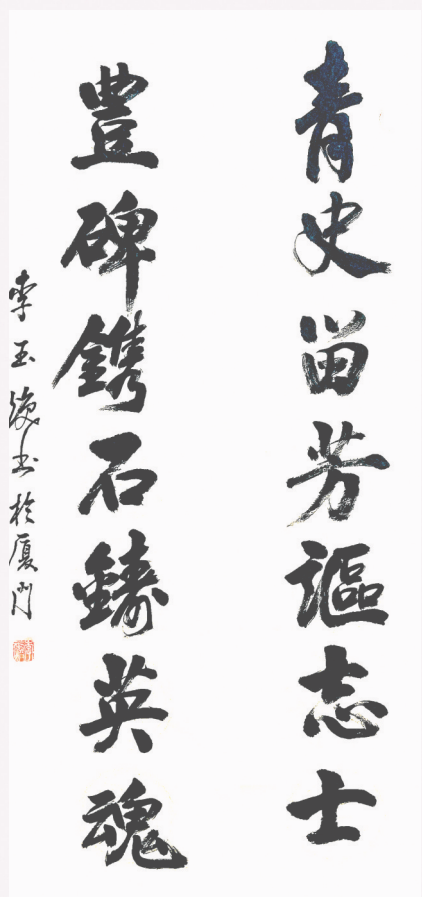 青史留芳謳志士
豐碑鐫石鑄英魂
李玉俊书於厦门